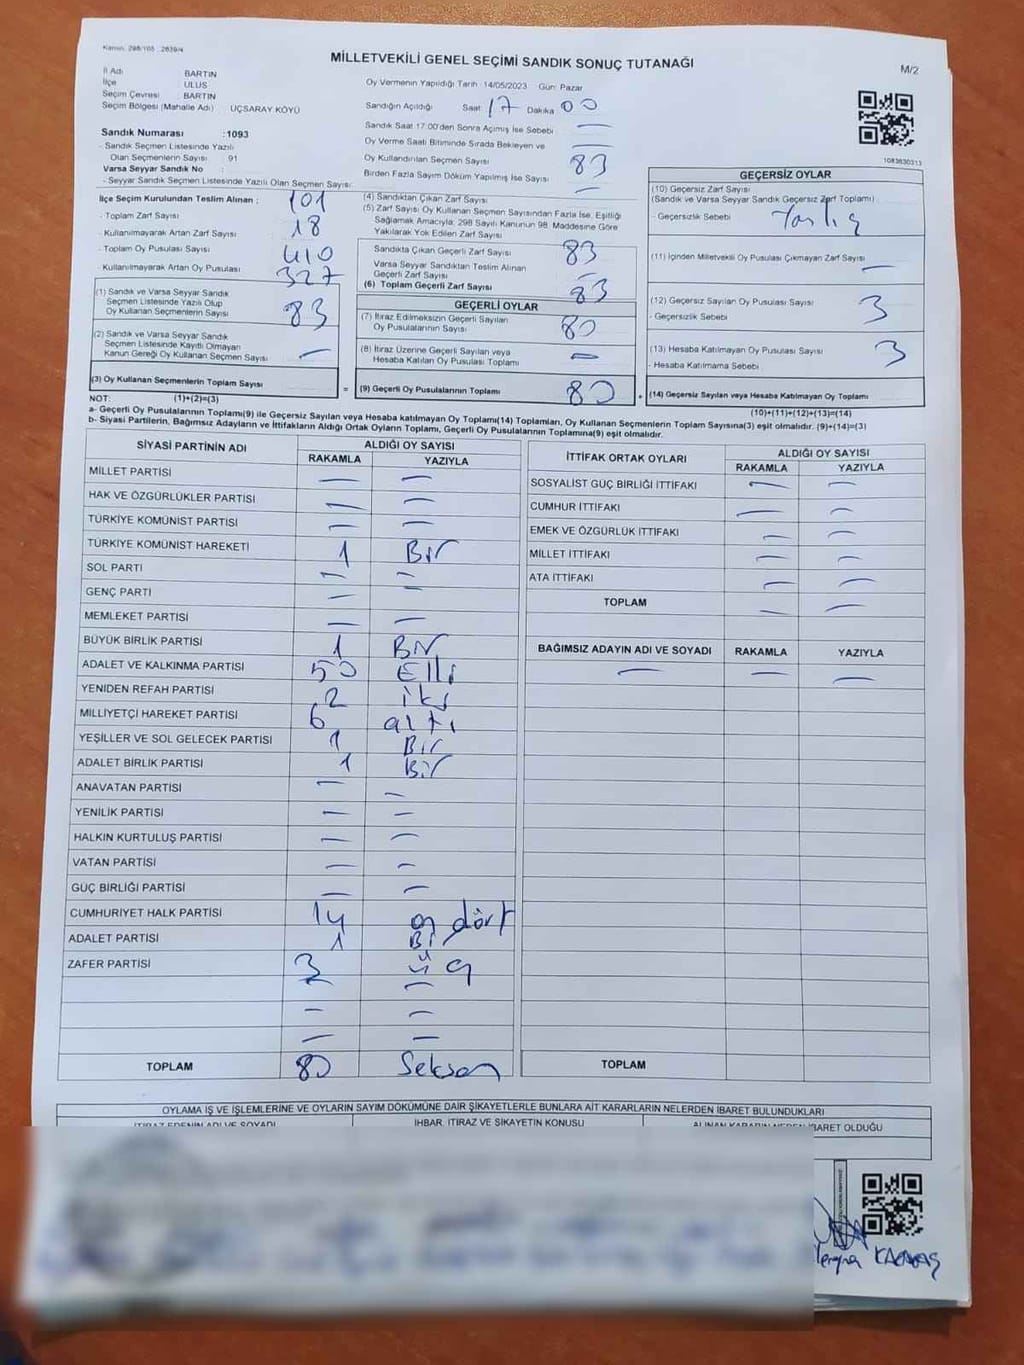 Kanun: 298/105 : 2839/4
MİLLETVEKİLİ GENEL SEÇİMİ SANDIK SONUÇ TUTANAĞI
M/2
İl Adı BARTIN
İlçe ULUS
Seçim Çevresi : BARTIN
Seçim Bölgesi (Mahalle Adı) UÇSARAY KÖYÜ
Sandık Numarası : 1093
- Sandık Seçmen Listesinde Yazılı
Olan Seçmenlerin Sayısı : 91
Varsa Seyyar Sandık No
- Seyyar Sandık Seçmen Listesinde Yazılı Olan Seçmen Sayısı:
Oy Vermenin Yapıldığı Tarih 14/05/2023 Gün: Pazar
Sandığın Açıldığı Saat 17 Dakika 00
Sandık Saat 17:00'den Sonra Açımış İse Sebebi —
Oy Verme Saati Bitiminde Sırada Bekleyen ve
Oy Kullandırılan Seçmen Sayısı 83
Birden Fazla Sayım Döküm Yapılmış İse Sayısı —
1083630313
İlçe Seçim Kurulundan Teslim Alınan : 101
- Toplam Zarf Sayısı
- Kullanılmayarak Artan Zarf Sayısı 18
- Toplam Oy Pusulası Sayısı 410
- Kullanılmayarak Artan Oy Pusulası 327
(1) Sandık ve Varsa Seyyar Sandık
Seçmen Listesinde Yazılı Olup
Oy Kullanan Seçmenlerin Sayısı 83
(2) Sandık ve Varsa Seyyar Sandık
Seçmen Listesinde Kayıtlı Olmayan
Kanun Gereği Oy Kullanan Seçmen Sayısı —
(3) Oy Kullanan Seçmenlerin Toplam Sayısı =
(4) Sandıktan Çıkan Zarf Sayısı
(5) Zarf Sayısı Oy Kullanan Seçmen Sayısından Fazla İse, Eşitliği
Sağlamak Amacıyla, 298 Sayılı Kanunun 98. Maddesine Göre
Yakılarak Yok Edilen Zarf Sayısı
Sandıkta Çıkan Geçerli Zarf Sayısı 83
Varsa Seyyar Sandıktan Teslim Alınan
Geçerli Zarf Sayısı —
(6) Toplam Geçerli Zarf Sayısı 83
GEÇERLİ OYLAR
(7) İtiraz Edilmeksizin Geçerli Sayılan
Oy Pusulalarının Sayısı 80
(8) İtiraz Üzerine Geçerli Sayılan veya
Hesaba Katılan Oy Pusulası Toplamı —
(9) Geçerli Oy Pusulalarının Toplamı 80 +
GEÇERSİZ OYLAR
(10) Geçersiz Zarf Sayısı
(Sandık ve Varsa Seyyar Sandık Geçersiz Zarf Toplamı)
- Geçersizlik Sebebi
(11) İçinden Milletvekili Oy Pusulası Çıkmayan Zarf Sayısı —
(12) Geçersiz Sayılan Oy Pusulası Sayısı 3
- Geçersizlik Sebebi
(13) Hesaba Katılmayan Oy Pusulası Sayısı 3
- Hesaba Katılmama Sebebi
(14) Geçersiz Sayılan veya Hesaba Katılmayan Oy Toplamı
NOT: (1)+(2)=(3) (10)+(11)+(12)+(13)=(14)
a- Geçerli Oy Pusulalarının Toplamı(9) ile Geçersiz Sayılan veya Hesaba katılmayan Oy Toplamı(14) Toplamları, Oy Kullanan Seçmenlerin Toplam Sayısına(3) eşit olmalıdır. (9)+(14)=(3)
b- Siyasi Partilerin, Bağımsız Adayların ve İttifakların Aldığı Ortak Oyların Toplamı, Geçerli Oy Pusulalarının Toplamına(9) eşit olmalıdır.
SİYASİ PARTİNİN ADI ALDIĞI OY SAYISI
RAKAMLA YAZIYLA
MİLLET PARTİSİ — —
HAK VE ÖZGÜRLÜKLER PARTİSİ — —
TÜRKİYE KOMÜNİST PARTİSİ — —
TÜRKİYE KOMÜNİST HAREKETİ 1 Bir
SOL PARTİ — —
GENÇ PARTİ — —
MEMLEKET PARTİSİ — —
BÜYÜK BİRLİK PARTİSİ 1 Bir
ADALET VE KALKINMA PARTİSİ 50 Elli
YENİDEN REFAH PARTİSİ 2 iki
MİLLİYETÇİ HAREKET PARTİSİ 6 altı
YEŞİLLER VE SOL GELECEK PARTİSİ 1 Bir
ADALET BİRLİK PARTİSİ 1 Bir
ANAVATAN PARTİSİ — —
YENİLİK PARTİSİ — —
HALKIN KURTULUŞ PARTİSİ — —
VATAN PARTİSİ — —
GÜÇ BİRLİĞİ PARTİSİ — —
CUMHURİYET HALK PARTİSİ 14 on dört
ADALET PARTİSİ 1 Bir
ZAFER PARTİSİ 3 üç
— —
— —
— —
TOPLAM 80 Seksen
İTTİFAK ORTAK OYLARI ALDIĞI OY SAYISI
RAKAMLA YAZIYLA
SOSYALİST GÜÇ BİRLİĞİ İTTİFAKI — —
CUMHUR İTTİFAKI — —
EMEK VE ÖZGÜRLÜK İTTİFAKI — —
MİLLET İTTİFAKI — —
ATA İTTİFAKI — —
TOPLAM — —
BAĞIMSIZ ADAYIN ADI VE SOYADI RAKAMLA YAZIYLA
— — —
TOPLAM
OYLAMA İŞ VE İŞLEMLERİNE VE OYLARIN SAYIM DÖKÜMÜNE DAİR ŞİKAYETLERLE BUNLARA AİT KARARLARIN NELERDEN İBARET BULUNDUKLARI
İTİRAZ EDENİN ADI VE SOYADI İHBAR, İTİRAZ VE ŞİKAYETİN KONUSU ALINAN KARARIN NEDEN İBARET OLDUĞU